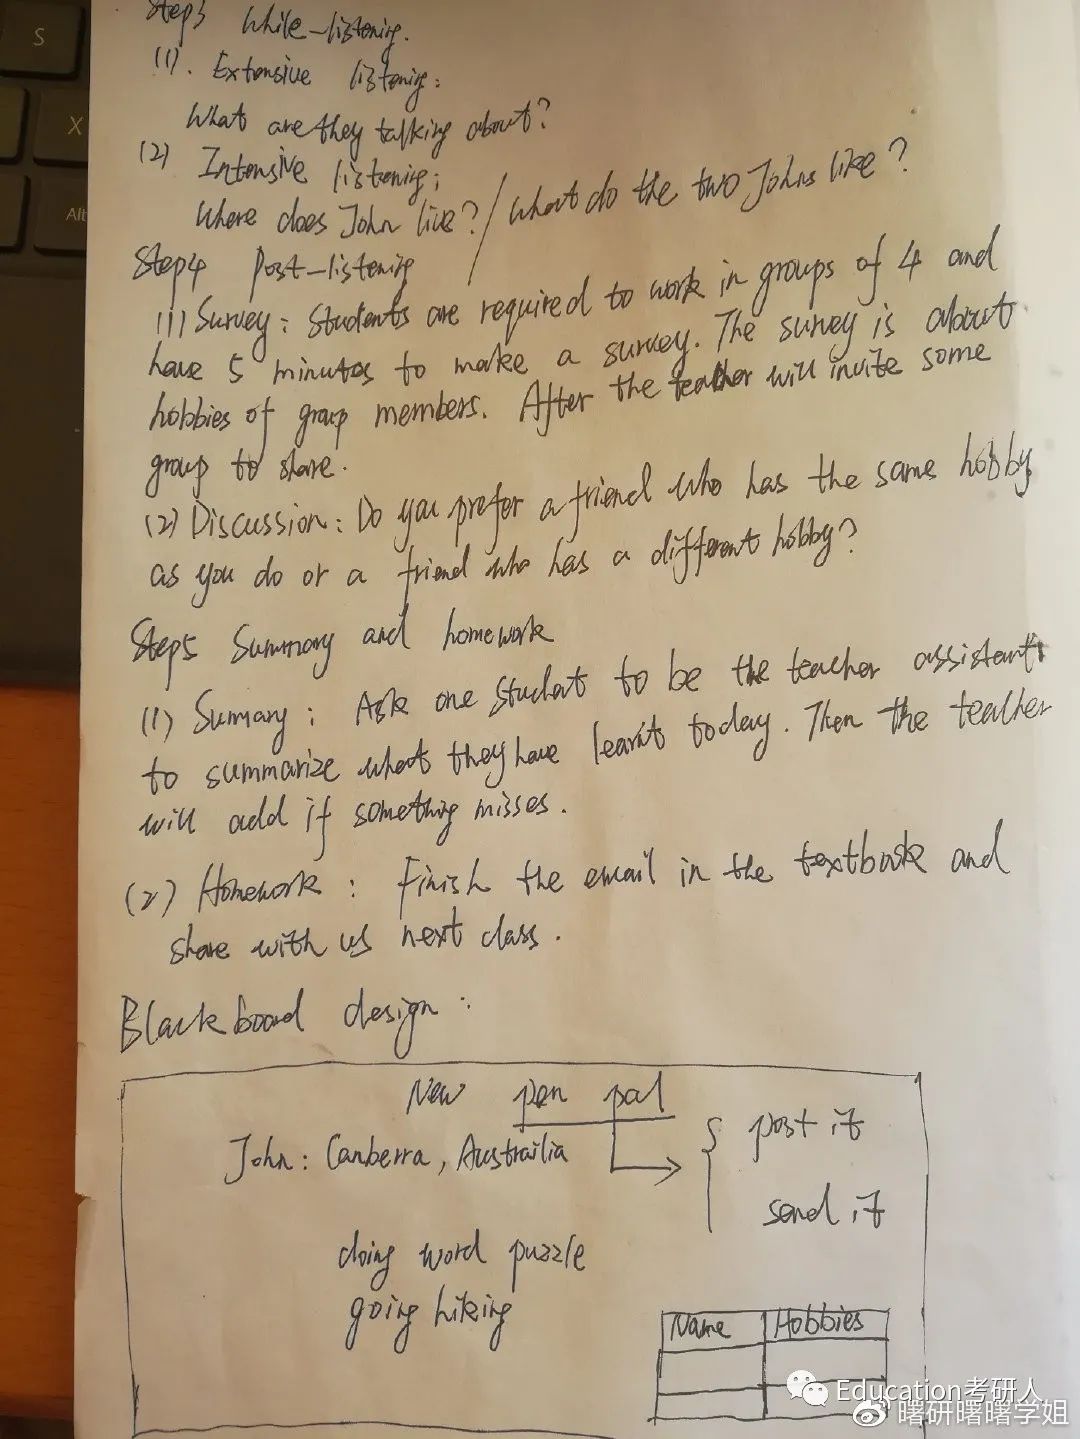 S
X
Alt
Step3 While-listening.
(1). Extensive listening:
What are they talking about?
(2) Intensive listening:
Where does John live? / What do the two Johns like?
Step4 Post-listening
(1) Survey: Students are required to work in groups of 4 and
have 5 minutes to make a survey. The survey is about
hobbies of group members. After the teacher will invite some
group to share.
(2) Discussion: Do you prefer a friend who has the same hobby
as you do or a friend who has a different hobby?
Step5 Summary and homework
(1) Summary: Ask one student to be the teacher assistant
to summarize what they have learnt today. Then the teacher
will add if something misses.
(2) Homework: Finish the email in the textbook and
share with us next class.
Blackboard design:
New pen pal
John: Canberra, Austrailia
post it
send it
doing word puzzle
going hiking
Name Hobbies
Education考研人
曙研曙曙学姐